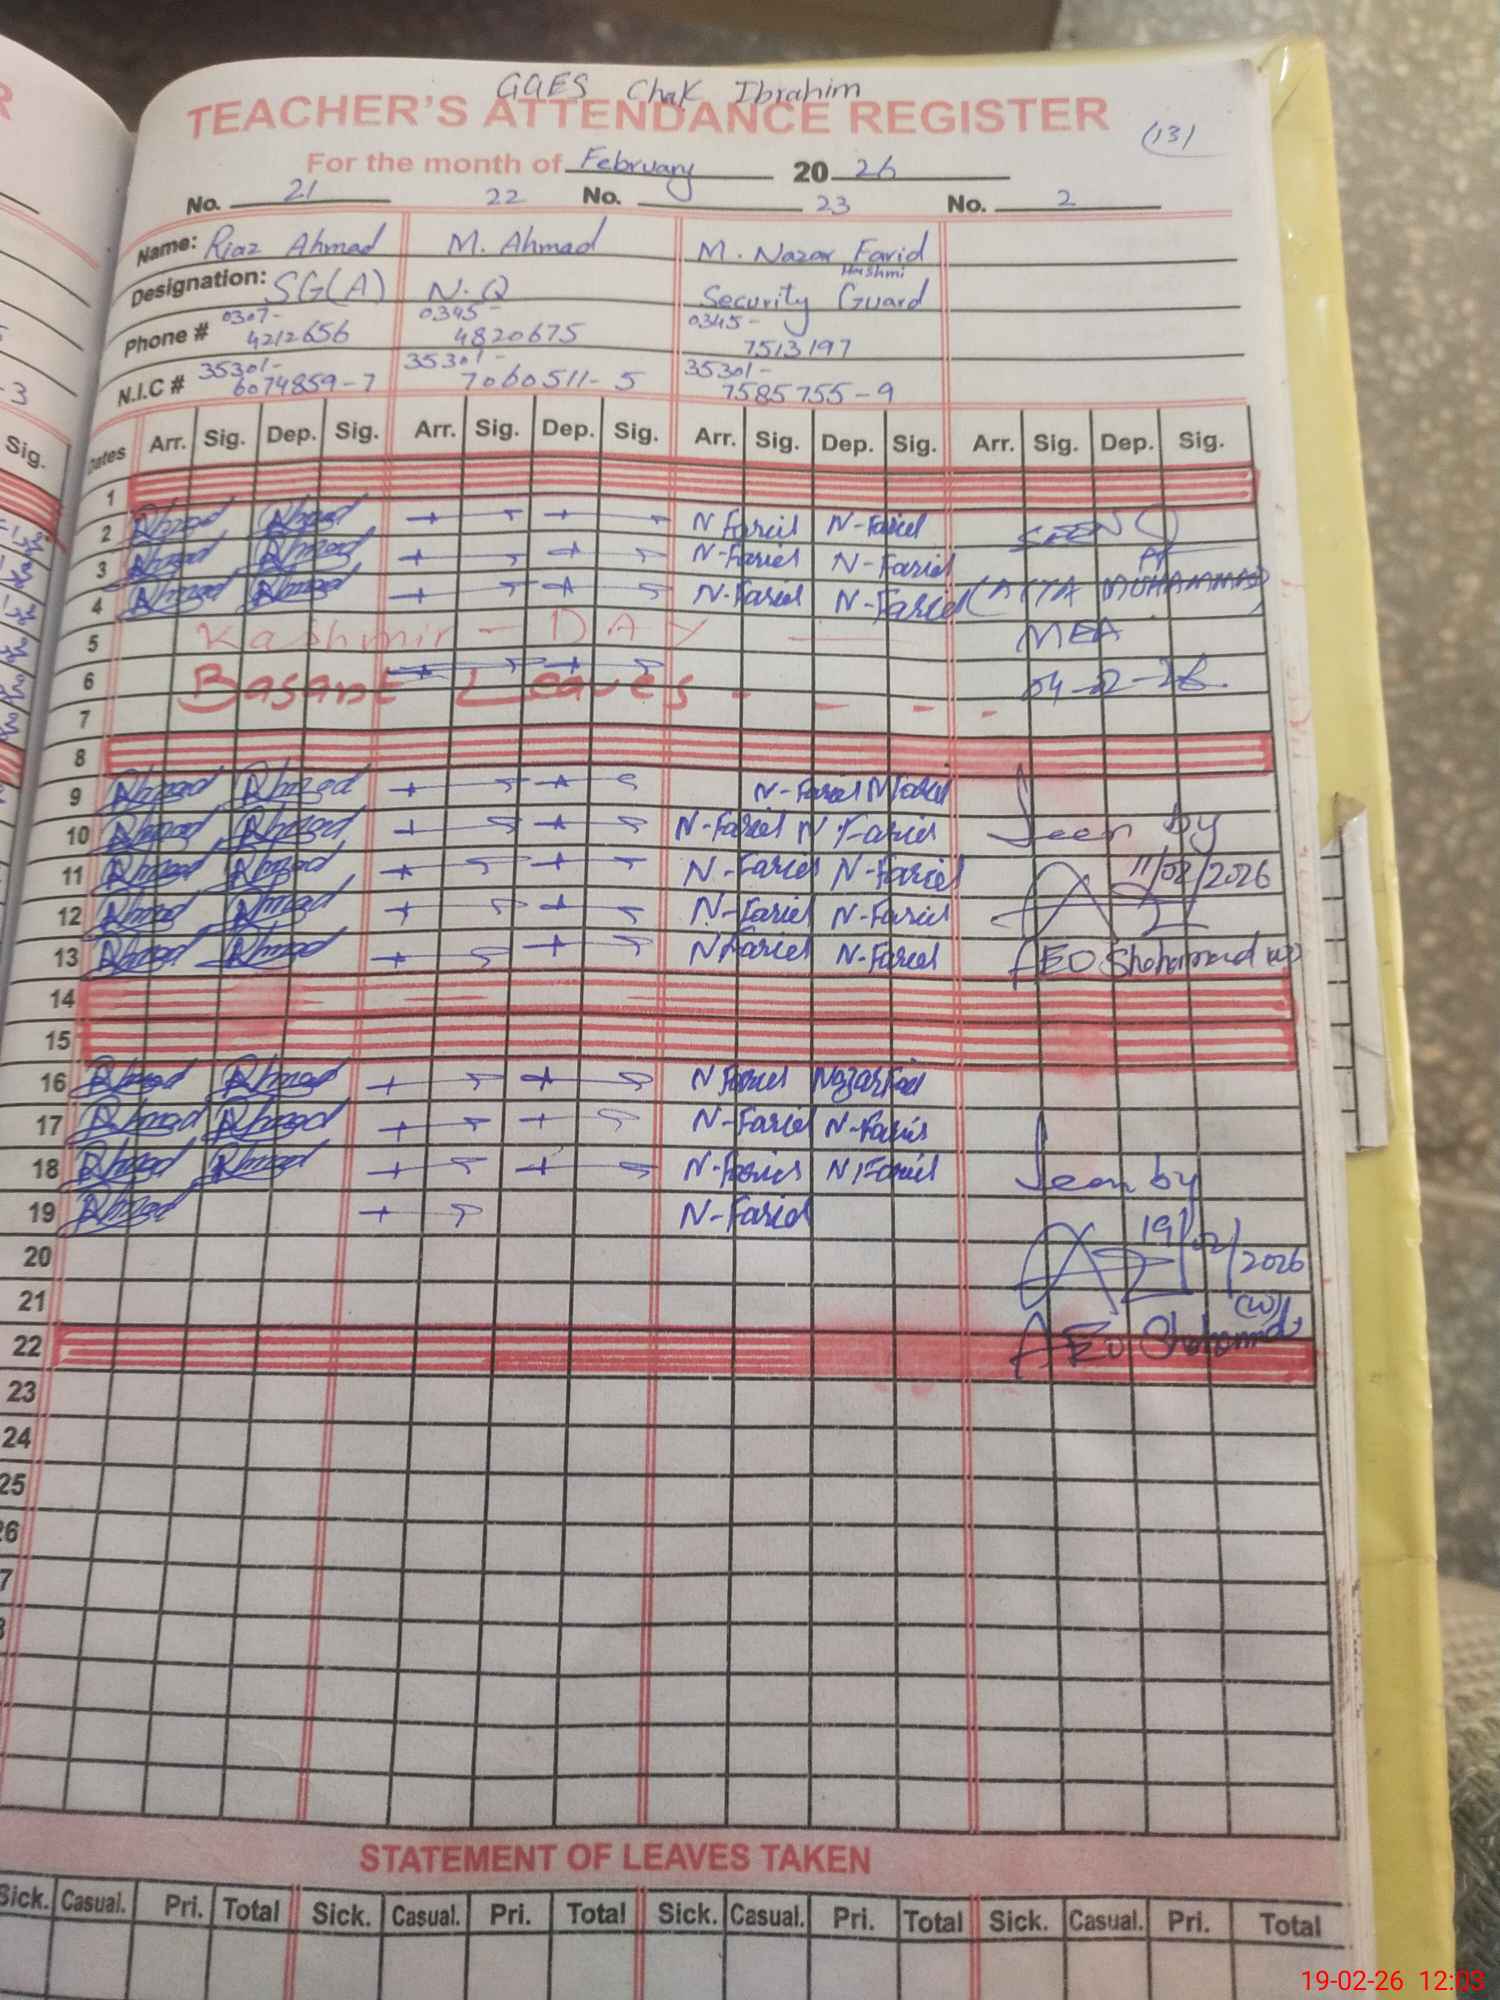 GGES Chak Ibrahim
TEACHER'S ATTENDANCE REGISTER
(13)
For the month of February 2026
No. 21 22 No. 23 No. 2
Name: Riaz Ahmad M. Ahmad M. Nazar Farid Hashmi
Designation: SG(A) N.Q Security Guard
Phone # 0307-4212656 0345-4820675 0345-7513197
N.I.C # 35301-6074859-7 35301-7060511-5 35301-7585755-9
Dates Arr. Sig. Dep. Sig. Arr. Sig. Dep. Sig. Arr. Sig. Dep. Sig. Arr. Sig. Dep. Sig.
1
2 Ahmad Ahmad N Farid N-Farid SEEN
3 Ahmad Ahmad N-Farid N-Farid
4 Ahmad Ahmad N-Farid N-Farid (ATTA MUHAMMAD)
5 Kashmir - DAY MEA
6 Basant Leaves - - - - 04-02-26
7
8
9 Ahmad Ahmad N-Farid N Farid
10 Ahmad Ahmad N-Farid N Farid Seen by
11 Ahmad Ahmad N-Farid N-Farid 11/02/2026
12 Ahmad Ahmad N-Farid N-Farid
13 Ahmad Ahmad N Farid N-Farid AEO (W)
14
15
16 Ahmad Ahmad N Farid Nazar Farid
17 Ahmad Ahmad N-Farid N-Farid
18 Ahmad Ahmad N-Farid N Farid Seen by
19 Ahmad N-Farid 19/02/2026
20
21 (W)
22 AEO
23
24
25
26
7
8
STATEMENT OF LEAVES TAKEN
Sick. Casual. Pri. Total Sick. Casual. Pri. Total Sick. Casual. Pri. Total Sick. Casual. Pri. Total
19-02-26 12:03